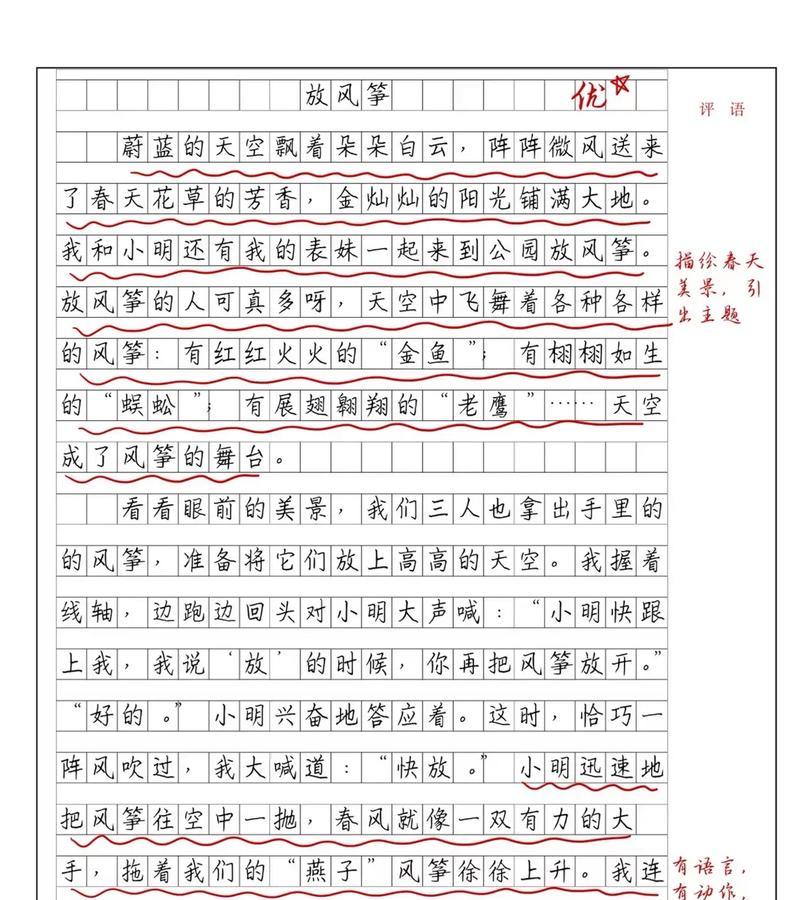 放风筝
优
评语
蔚蓝的天空飘着朵朵白云，阵阵微风送来
了春天花草的芳香，金灿灿的阳光铺满大地。
我和小明还有我的表妹一起来到公园放风筝。
放风筝的人可真多呀，天空中飞舞着各种各样
的风筝：有红红火火的“金鱼”；有栩栩如生
的“蜈蚣”；有展翅翱翔的“老鹰”……天空
成了风筝的舞台。
描绘春天
美景，引
出主题
看看眼前的美景，我们三人也拿出手里的
的风筝，准备将它们放上高高的天空。我握着
线轴，边跑边回头对小明大声喊：“小明快跟
上我，我说‘放’的时候，你再把风筝放开。”
“好的。”小明兴奋地答应着。这时，恰巧一
阵风吹过，我大喊道：“快放。”小明迅速地
把风筝往空中一抛，春风就像一双有力的大
手，拖着我们的“燕子”风筝徐徐上升。我连
有语言，
有动作，